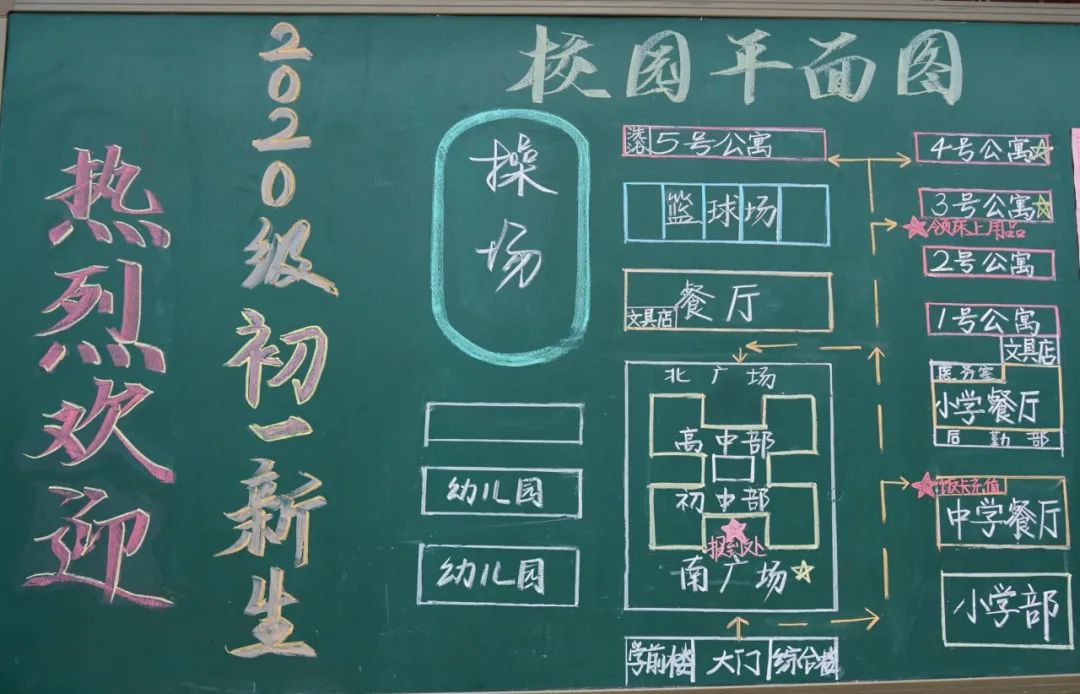 热烈欢迎
2020级初一新生
校园平面图
操场
洗浴
5号公寓
4号公寓
篮球场
3号公寓
领床上用品
2号公寓
餐厅
文具店
1号公寓
文具店
北广场
医务室
小学餐厅
后勤部
高中部
幼儿园
初中部
饭卡充值
中学餐厅
报到处
幼儿园
南广场
小学部
学前楼
大门
综合楼